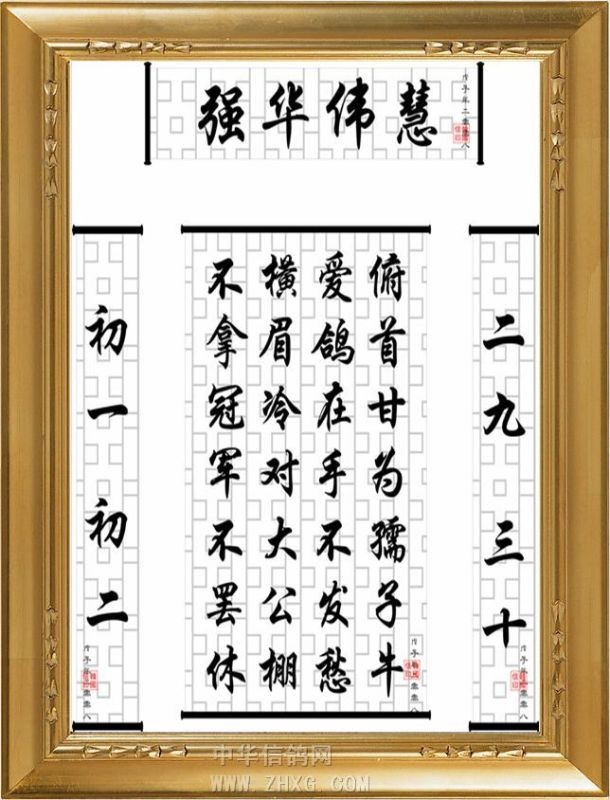 强华伟慧
戊子年二零零八
二九三十
俯首甘为孺子牛
爱鸽在手不发愁
横眉冷对大公棚
不拿冠军不罢休
初一初二
中华信鸽网
WWW.ZHXG.COM